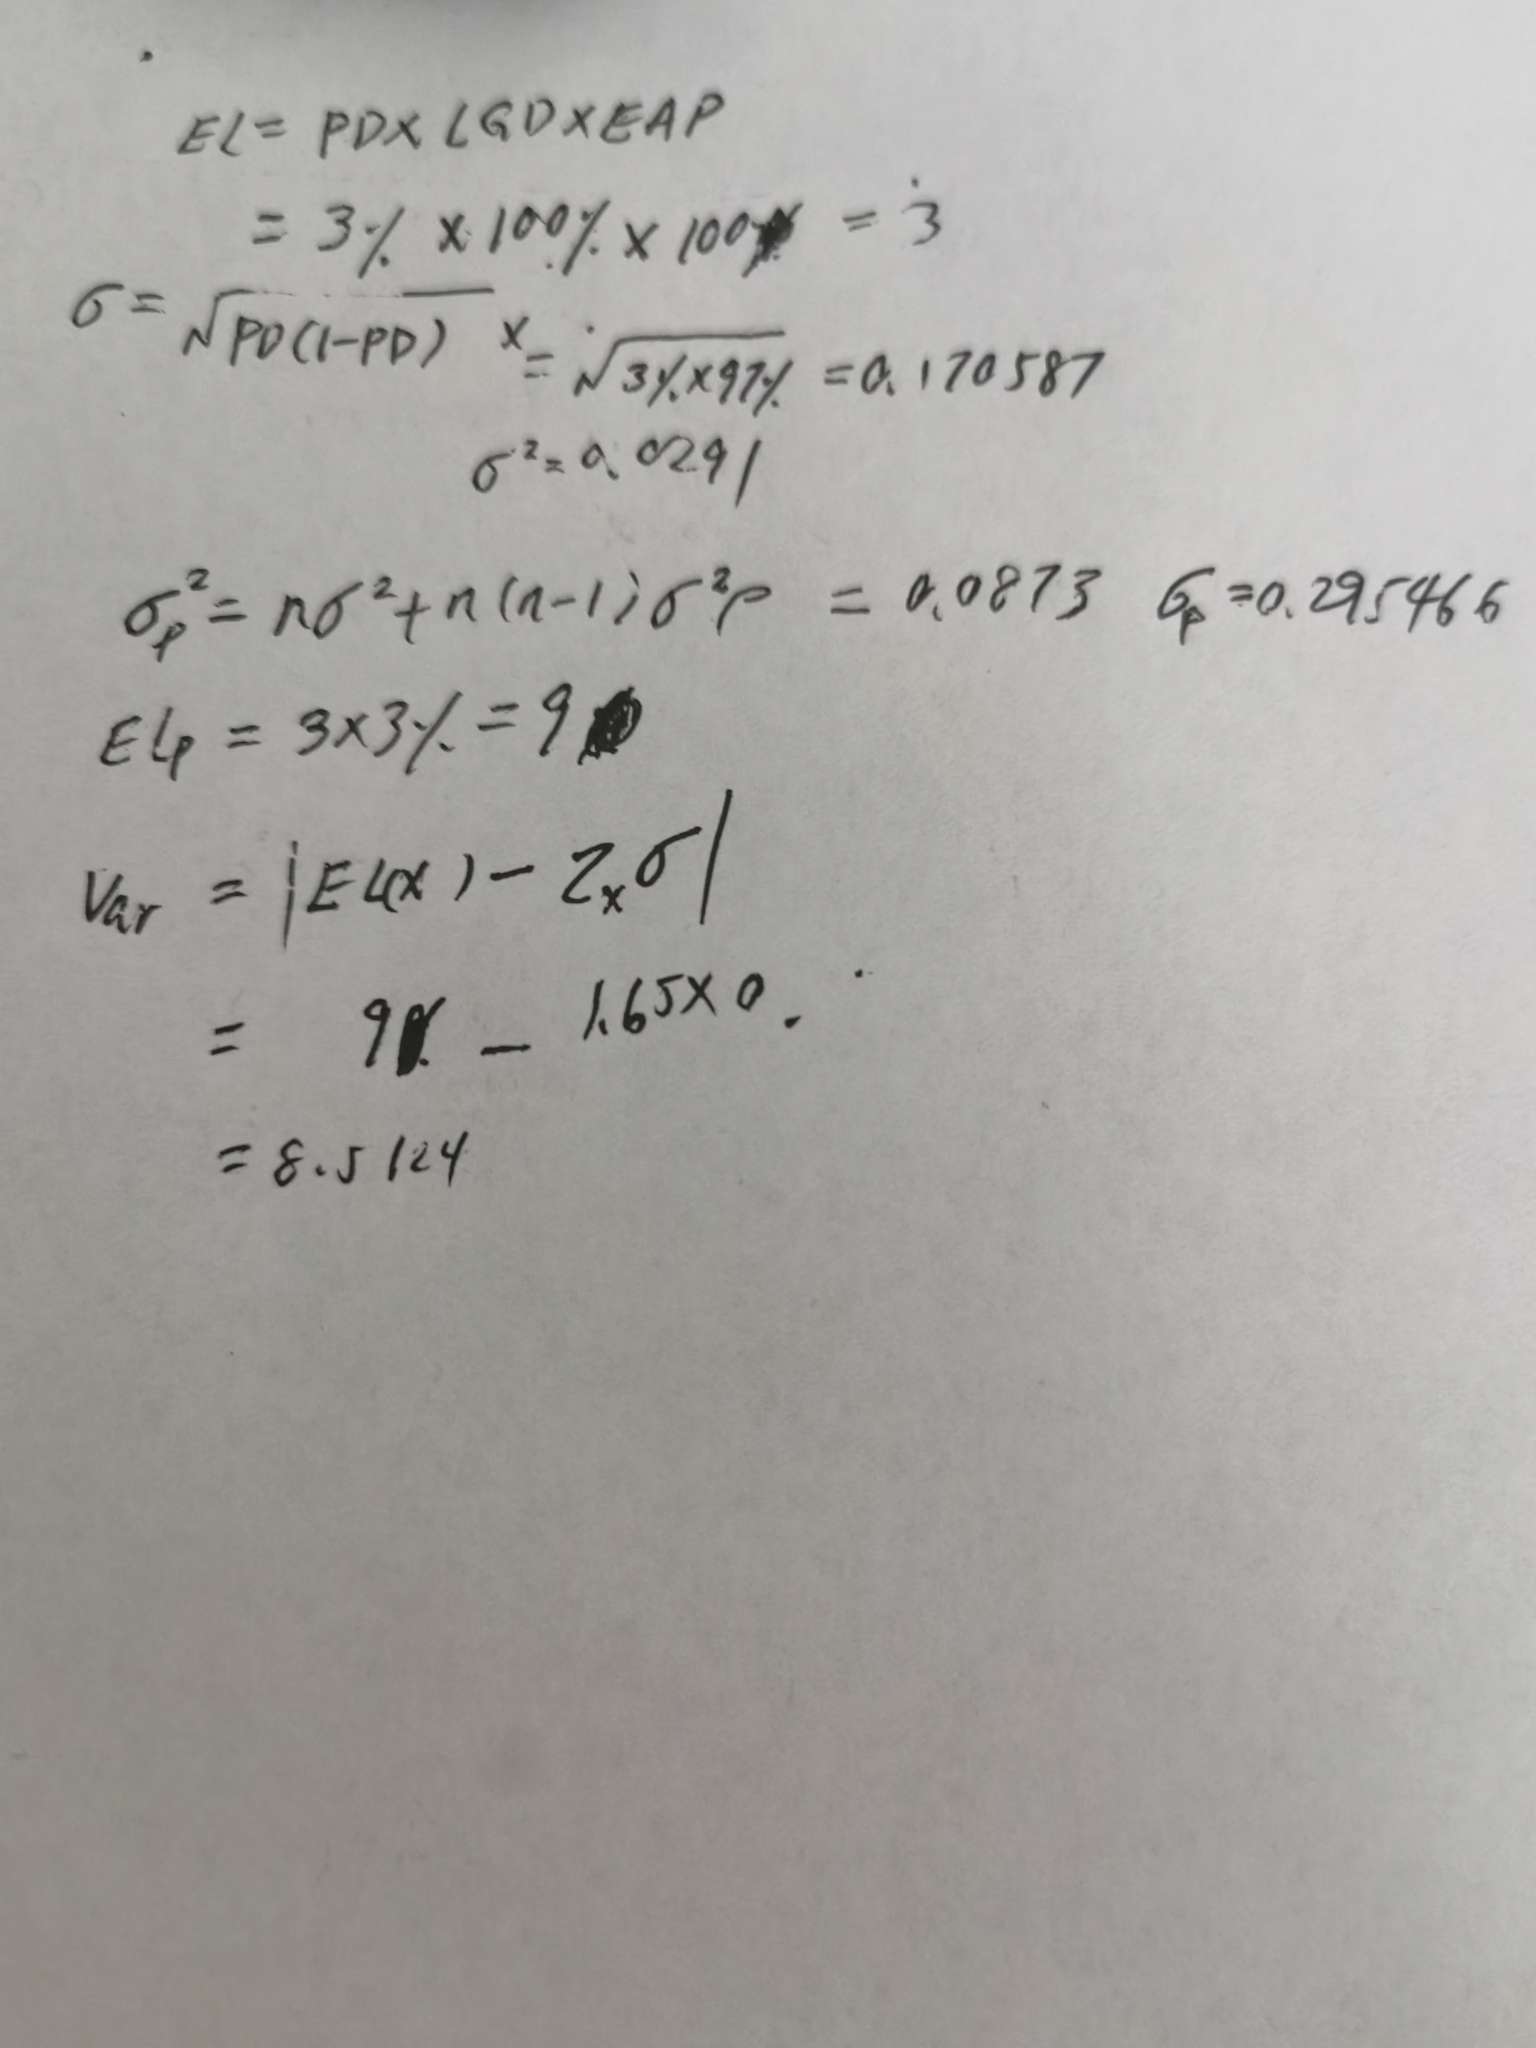 EL = PD × LGD × EAP
= 3% × 100% × 100 = 3
σ = √PD(1-PD) × = √3%×97% = 0.170587
σ² = 0.0291
σp² = nσ² + n(n-1)σ²ρ = 0.0873 σp = 0.295466
ELp = 3×3% = 9
Var = |EL(x) - Zxσ|
= 9 - 1.65×0.
= 8.5124